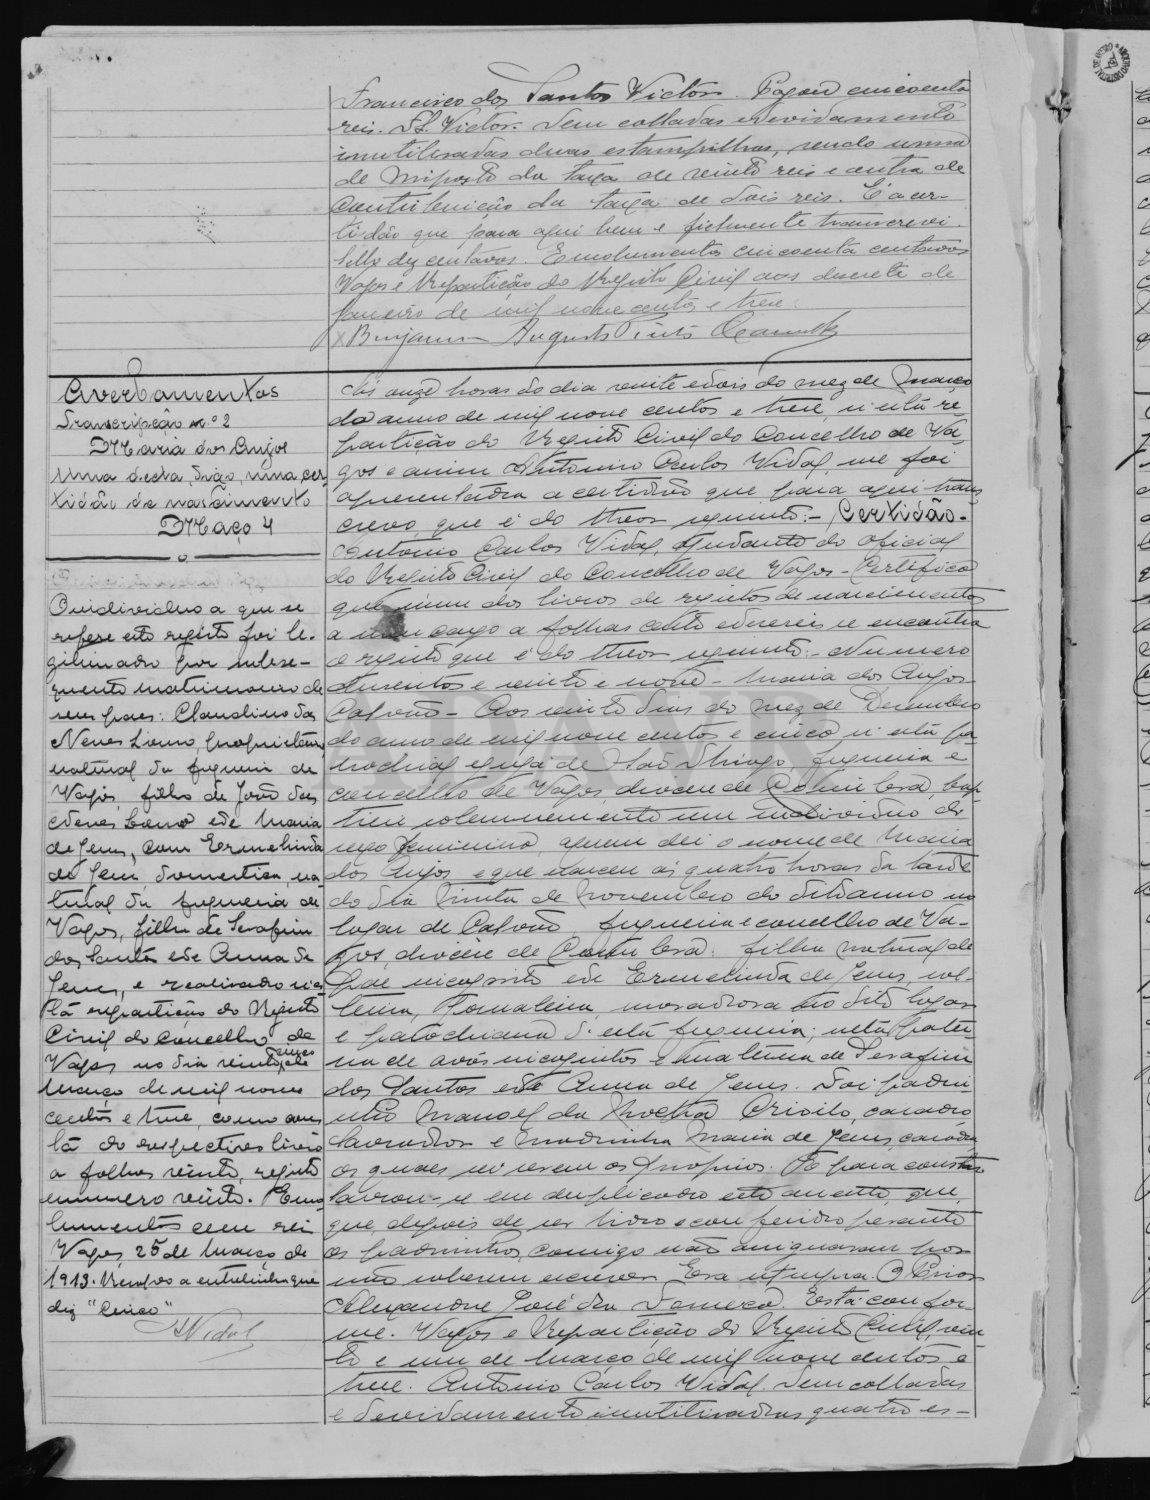 Francisco dos Santos Victor. Pagou cincoenta
reis. F.S. Victor. Tem colladas e devidamente
inutilisadas duas estampilhas, sendo uma
de imposto da taxa de vinte reis e outra de
contribuição da taxa de dois reis. É a cer-
tidão que para aqui bem e fielmente transcrevi.
Sello dez centavos. Emolumentos cincoenta centavos
Vagos e Repartição do Registo Civil aos dezesete de
Janeiro de mil nove centos e treze.
Benjamin Augusto
Averbamentos
Transcripção n.º 2
Maria dos Anjos
Uma desta, digo, uma cer-
tidão de nascimento
Maço 4
O individuo a que se
refere este registo foi le-
gitimado por subse-
quente matrimonio de
seus paes: Claudino das
Neves Louro, proprietario,
natural da freguesia de
Vagos, filho de João das
Neves Louro e de Maria
de Jesus, com Ermelinda
de Jesus, domestica, na-
tural da freguesia de
Vagos, filha de Serafim
dos Santos e de Anna de
Jesus, e realisado nes-
ta repartição do Registo
Civil do concelho de
Vagos no dia vinte e cinco de
março de mil nove
centos e treze, como cons-
ta do respectivo livro
a folhas vinte, registo
numero vinte. Emo-
lumentos cem reis
Vagos, 25 de Março de
1913. Resalvo a entrelinha que
diz "cinco"
Vidal
Ás onze horas do dia vinte e dois do mez de Março
do anno de mil nove centos e treze, n'esta re-
partição do Registo Civil do Concelho de Va-
gos e a mim Antonio Carlos Vidal, me foi
apresentada a certidão que para aqui trans-
crevo, que é do theor seguinte:- Certidão.-
Antonio Carlos Vidal, Ajudante do oficial
do Registo Civil do Concelho de Vagos - Certifico
que n'um dos livros de registos de nascimentos
a meu cargo a folhas cento e dezeseis se encontra
o registo que é do theor seguinte:- Numero
duzentos e vinte e nove - Maria dos Anjos
Calvão - Aos vinte dias do mez de Dezembro
do anno de mil nove centos e cinco, n'esta pa-
rochial egreja de São Thiago, freguesia e
concelho de Vagos, diocese de Coimbra, bap-
tisei solemnemente um individuo do
sexo feminino, a quem dei o nome de Maria
dos Anjos e que nasceu ás quatro horas da tarde
do dia trinta de Novembro do dito anno no
logar de Calvão, freguesia e concelho de Va-
gos, diocese de Coimbra. filha natural de
pae incognito e de Ermelinda de Jesus, sol-
teira, jornaleira, moradora no dito logar
e parochiana d'esta freguesia; neta pater-
na de avós incognitos e materna de Serafim
dos Santos e de Anna de Jesus. Foi padri-
nho Manoel da Rocha Crioilo, casado
lavrador e madrinha Maria de Jesus, casada
os quaes sei serem os proprios. E para constar
lavrou-se em duplicado este assento, que,
que, depois de ser lido e conferido perante
os padrinhos, comigo não assignaram por
não saberem escrever. Era ut supra. O Prior
Alexandre José da Fonseca. Está confor-
me. Vagos e Repartição do Registo Civil, vin-
te e um de Março de mil nove centos e
treze. Antonio Carlos Vidal. Tem colladas
e devidamente inutilisadas quatro es-